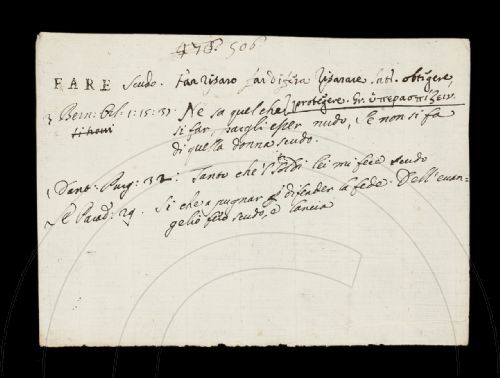 476. 506
FARE Scudo. Far riparo far difesa riparare. Lat. obtegere,
protegere. Gr. ὑπερασπίζειν.
Bern: Orl: 1: 15: 51: Ne sa quel che
si far, pargli esser nudo, Se non si fa
di quella donna scudo.
Dant: Purg: 32: Tanto che sol di lei mi fece scudo
E Parad: 29. Sì che a pugnar p difender la fede. Dell'evan-
gelio fero scudo, e lancia